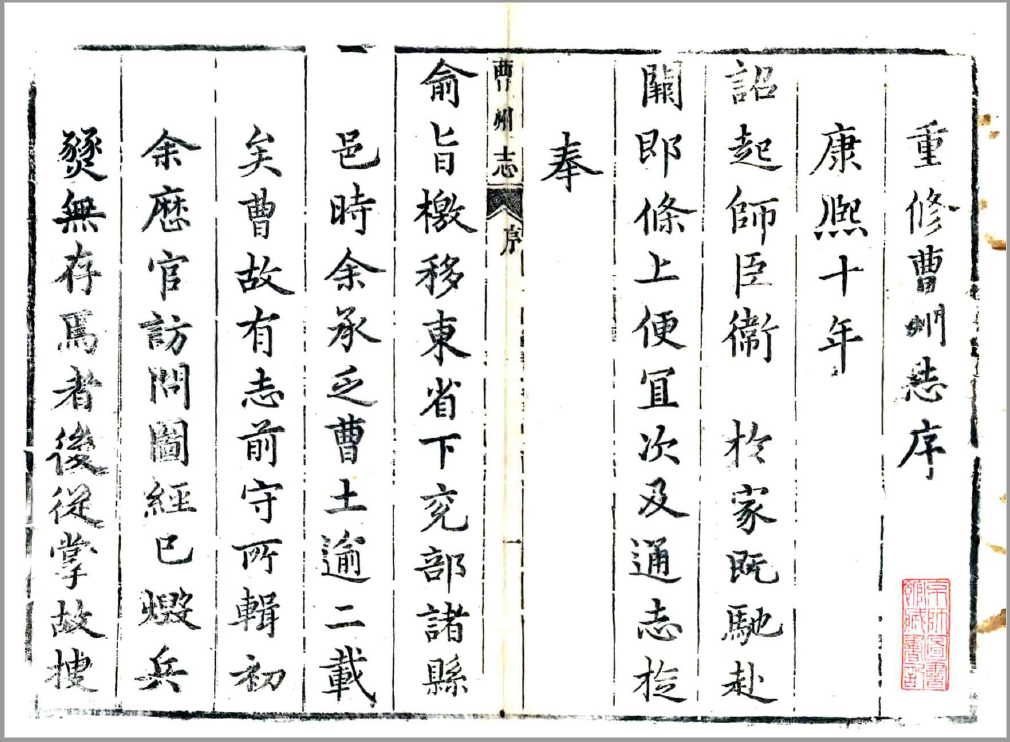 重修曹州志序
康熙十年
詔起師臣衛　於家既馳赴
闕即條上便宜次及通志於
奉
曹州志　序　一
俞旨檄移東省下兖部諸縣
邑時余承乏曹土逾二載
矣曹故有志前守所輯初
余歷官訪問圖經已燬兵
燹無存焉者後從掌故搜